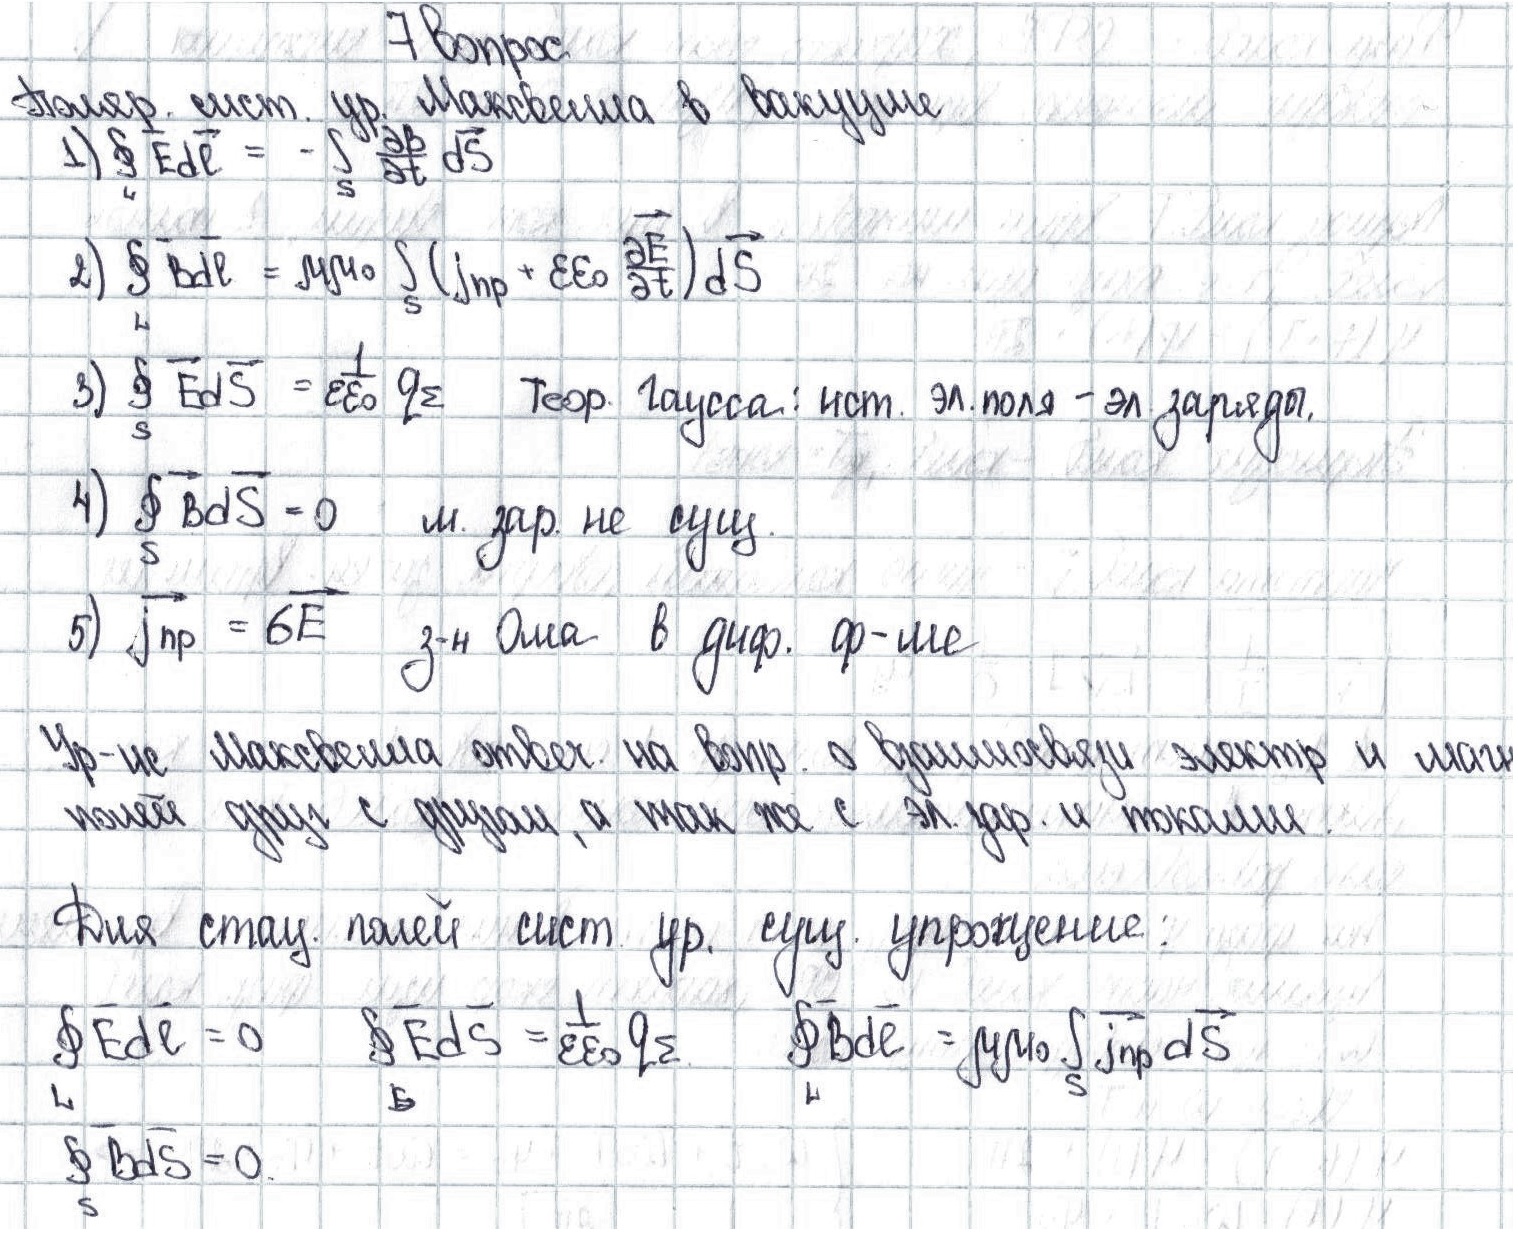 7 вопрос
Поляр. сист. ур. Максвелла в вакууме
1) ∮_L E⃗dℓ⃗ = - ∫_S ∂B/∂t dS⃗
2) ∮_L B⃗dℓ⃗ = μμ₀ ∫_S (jпр + εε₀ ∂E⃗/∂t) dS⃗
3) ∮_S E⃗dS⃗ = 1/εε₀ q_Σ Теор. Гаусса: ист. эл. поля - эл заряды.
4) ∮_S B⃗dS⃗ = 0 м. зар. не сущ.
5) j⃗пр = σE⃗ з-н Ома в диф. ф-ме
Ур-ие Максвелла отвеч. на вопр. о взаимосвязи электр и магн
полей друг с другом, а так же с эл. зар. и токами.
Для стац. полей сист. ур. сущ. упрощение:
∮_L E⃗dℓ⃗ = 0 ∮_S E⃗dS⃗ = 1/εε₀ q_Σ. ∮_L B⃗dℓ⃗ = μμ₀ ∫_S j⃗пр dS⃗
∮_S B⃗dS⃗ = 0.